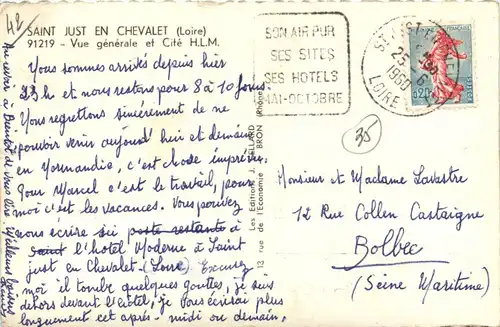 42
SAINT JUST EN CHEVALET (Loire)
91219 - Vue générale et Cité H.L.M.
Nous sommes arrivés depuis hier
23h et nous restons pour 8 à 10 jours.
Nous regrettons sincèrement de ne
pouvoir venir aujourd'hui et demain
en Normandie, c'est chose imprévue.
Pour Marcel c'est le travail, pour
moi c'est les vacances. Vous pouvez
nous écrire soi poste restante à
Saint l'hotel Moderne à Saint
just en Chevalet (Loire) Excusez
moi il tombe quelques gouttes, je suis
dehors devant l'hôtel, je vous écrirai plus
longuement cet après-midi ou demain,
Au revoir à
Bientôt de vous lire. Meilleurs baisers
Les Editions J. CELLARD
13 rue de l'Economie BRON (Rhône)
SON AIR PUR
SES SITES
SES HOTELS
MAI-OCTOBRE
ST JUST-EN-CHEVALET
25-6
1960
LOIRE
0,20
35
Monsieur et Madame Lavastre
12 Rue Collen Castaigne
Bolbec
(Seine Maritime)